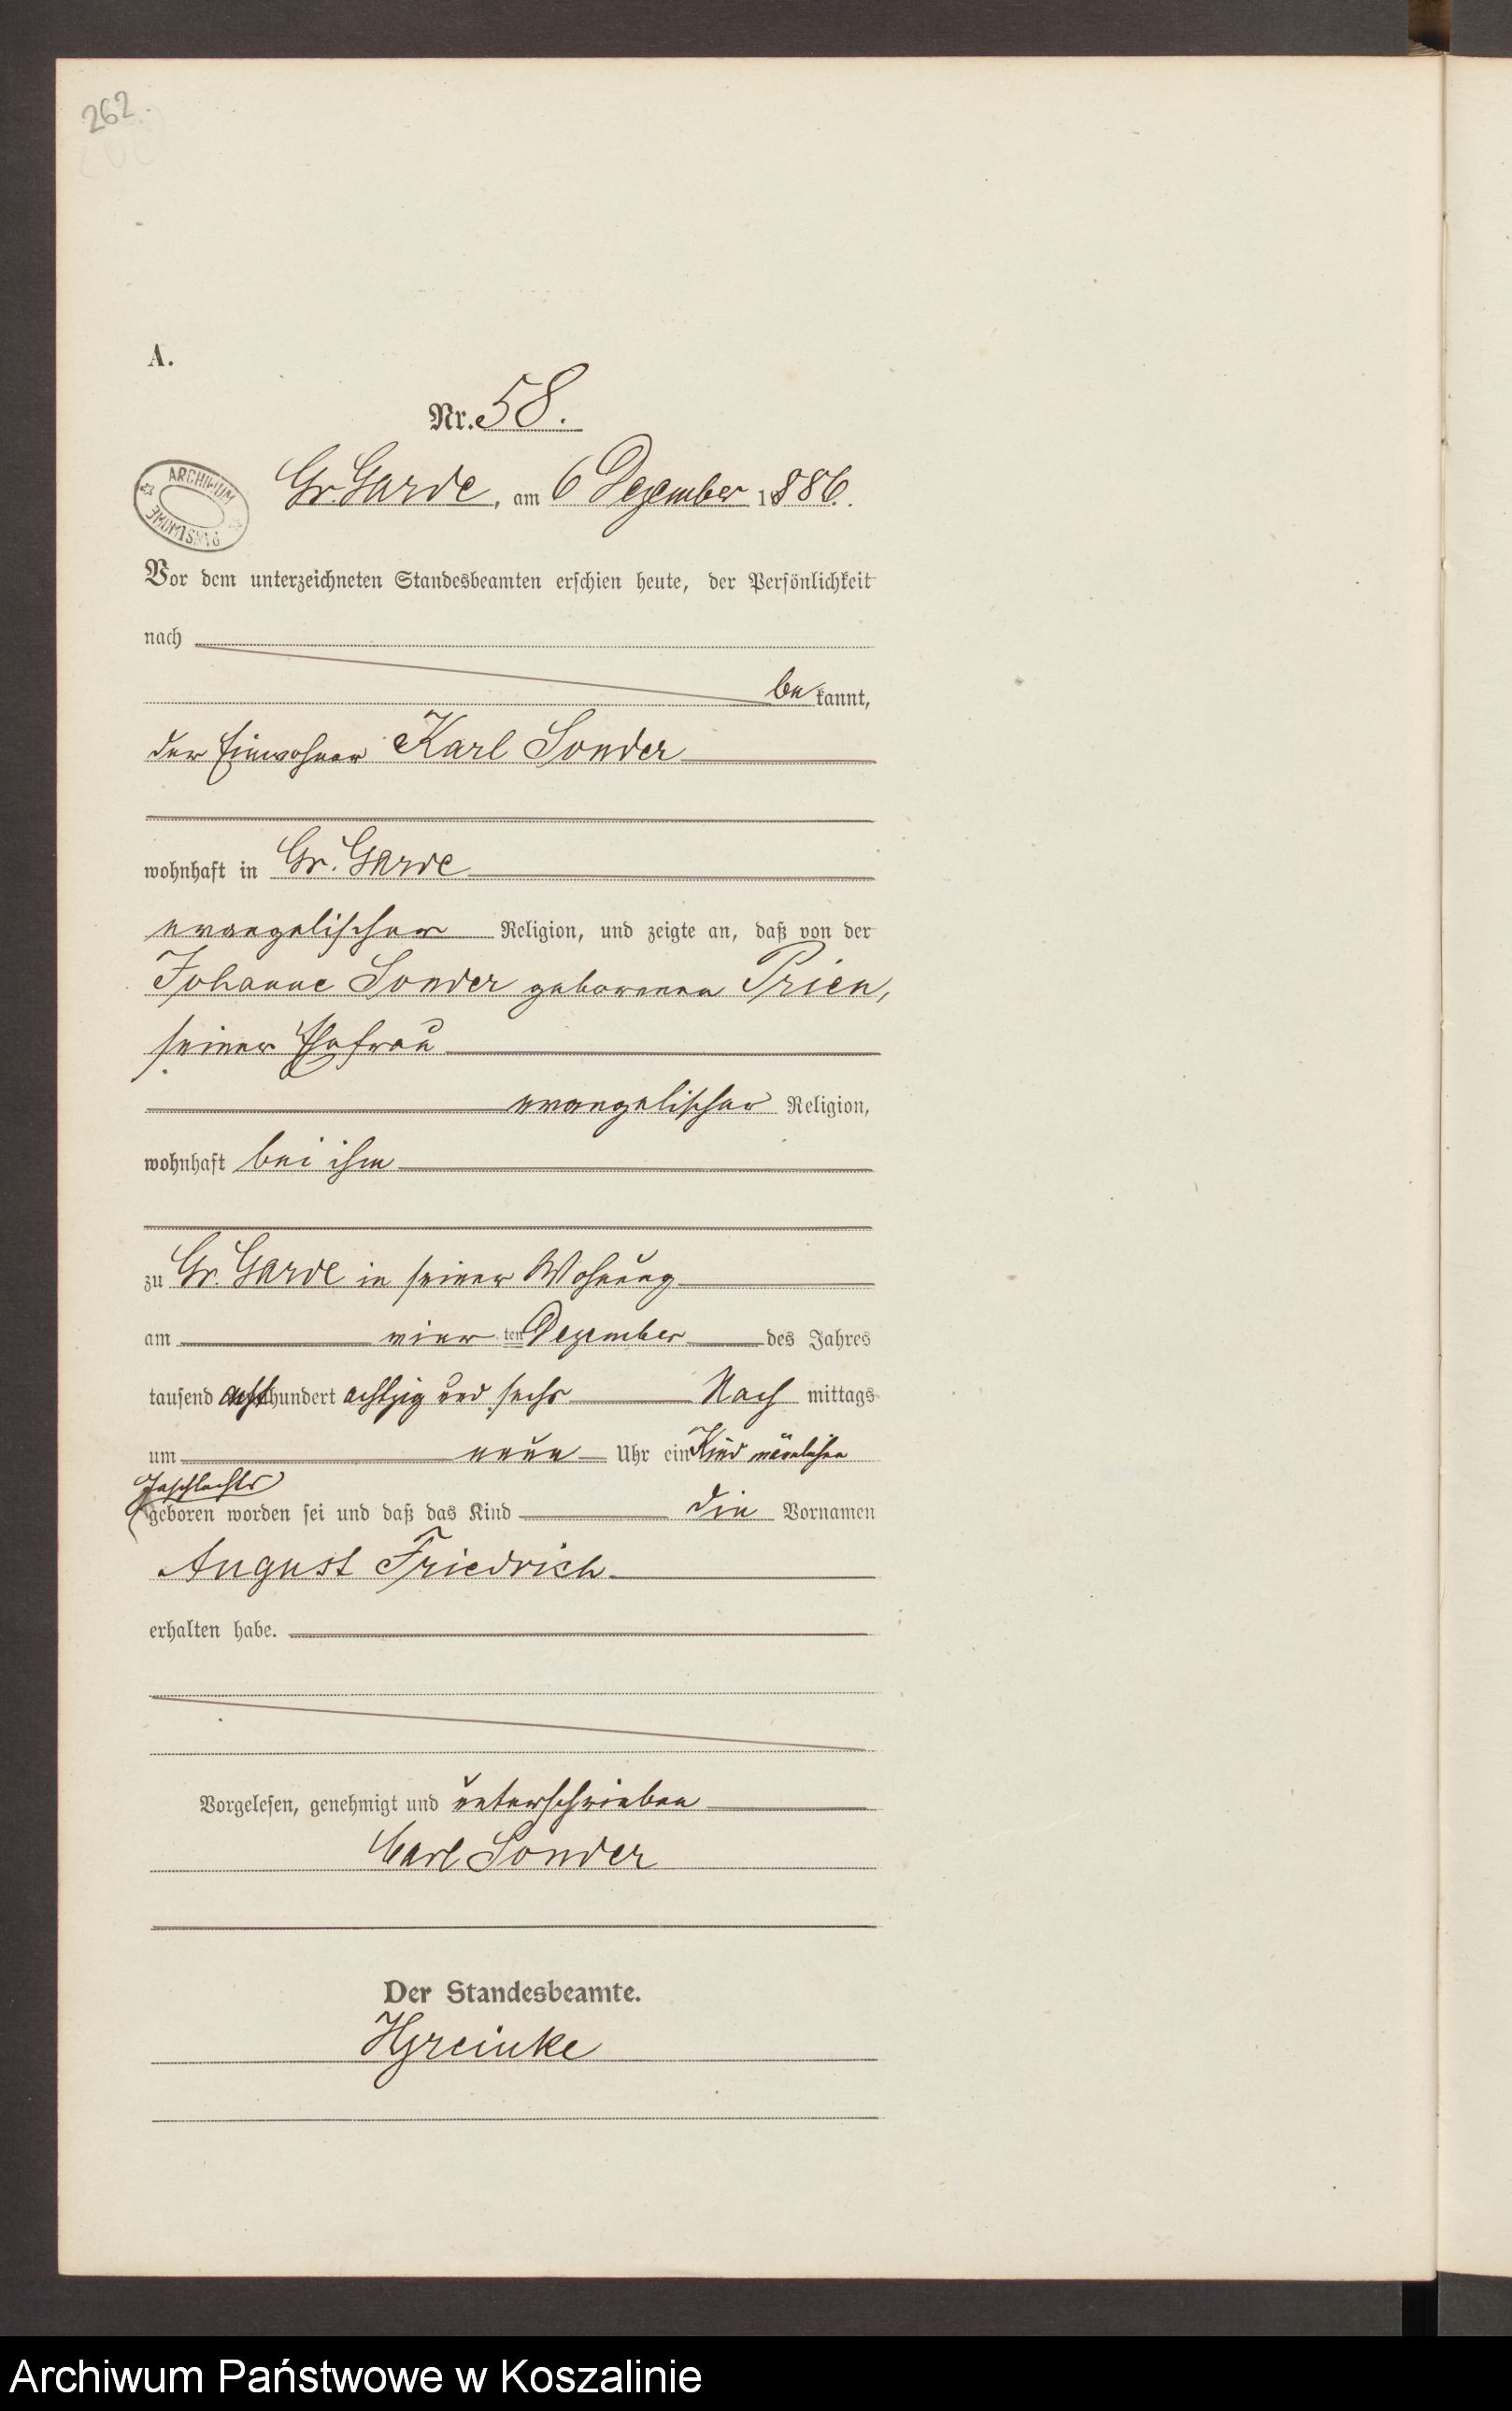 262.
A.
Nr. 58.
ARCHIWUM PAŃSTWOWE
Gr. Garde, am 6 Dezember 1886.
Vor dem unterzeichneten Standesbeamten erschien heute, der Persönlichkeit
nach
be kannt,
der Einwohner Karl Sonder
wohnhaft in Gr. Garde
evangelischer Religion, und zeigte an, daß von der
Johanne Sonder geborenen Prien,
seiner Ehefrau
evangelischer Religion,
wohnhaft bei ihm
zu Gr. Garde in seiner Wohnung
am vier ten Dezember des Jahres
tausend acht hundert achtzig und sechs Nach mittags
um neun Uhr ein Kind männlichen
Geschlechts
geboren worden sei und daß das Kind die Vornamen
August Friedrich
erhalten habe.
Vorgelesen, genehmigt und unterschrieben
Carl Sonder
Der Standesbeamte.
Archiwum Państwowe w Koszalinie